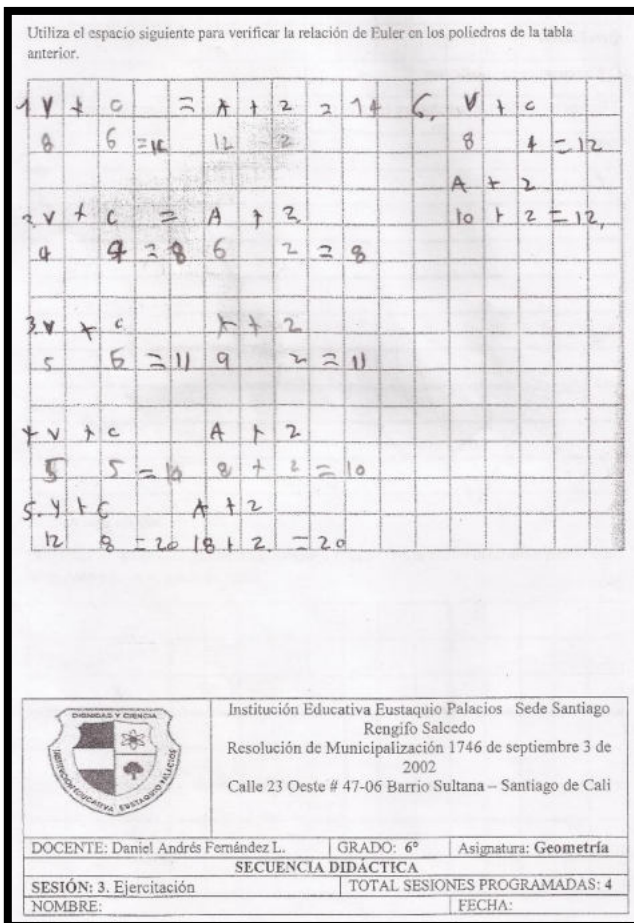 Utiliza el espacio siguiente para verificar la relación de Euler en los poliedros de la tabla
anterior.
1 V + C = A + 2 = 14
8 6 = 14 12 2
2 V + C = A + 2
4 4 = 8 6 2 = 8
3. V + C A + 2
5 6 = 11 9 2 = 11
4 V + C A + 2
5 5 = 10 8 + 2 = 10
5. V + C A + 2
12 8 = 20 18 + 2. = 20
6. V + C
8 4 = 12
A + 2
10 + 2 = 12.
DIGNIDAD Y CIENCIA
INSTITUCIÓN EDUCATIVA EUSTAQUIO PALACIOS
Institución Educativa Eustaquio Palacios Sede Santiago
Rengifo Salcedo
Resolución de Municipalización 1746 de septiembre 3 de
2002
Calle 23 Oeste # 47-06 Barrio Sultana – Santiago de Cali
DOCENTE: Daniel Andrés Fernández L. GRADO: 6° Asignatura: Geometría
SECUENCIA DIDÁCTICA
SESIÓN: 3. Ejercitación TOTAL SESIONES PROGRAMADAS: 4
NOMBRE: FECHA: